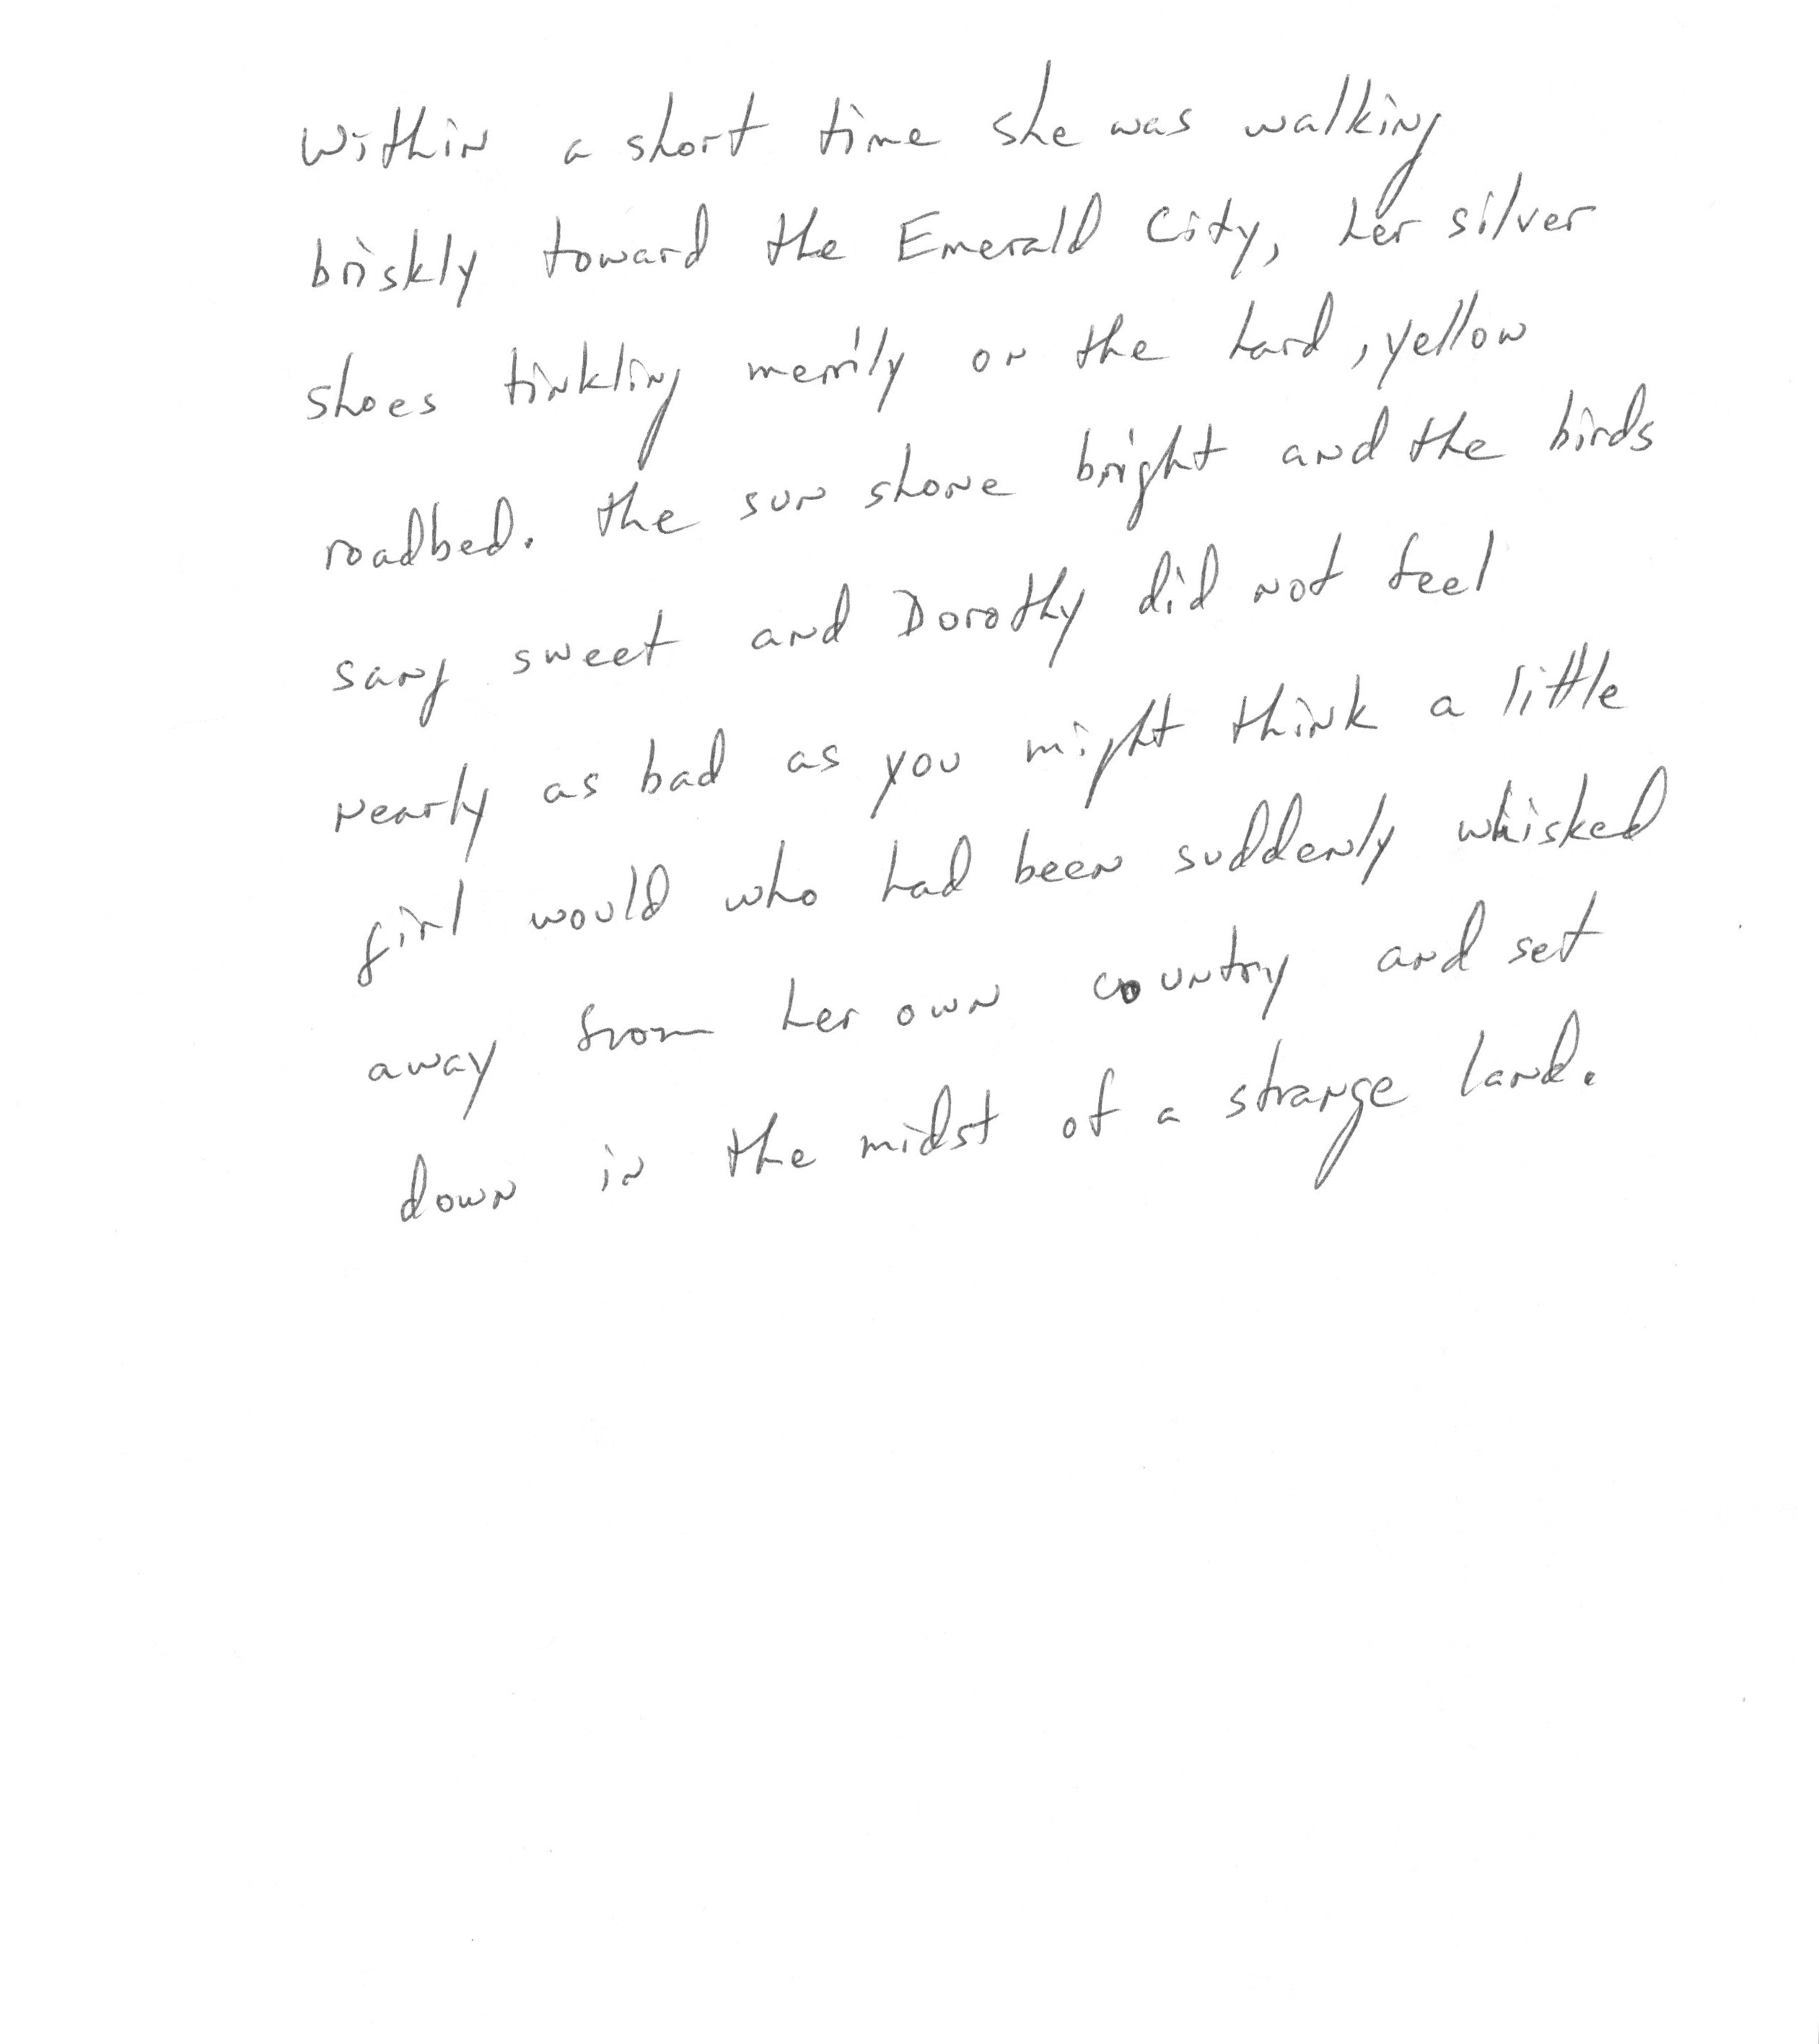 Within a short time she was walking
briskly toward the Emerald City, her silver
shoes tinkling merrily on the hard, yellow
roadbed. The sun shone bright and the birds
sang sweet and Dorothy did not feel
nearly as bad as you might think a little
girl would who had been suddenly whisked
away from her own country and set
down in the midst of a strange land.